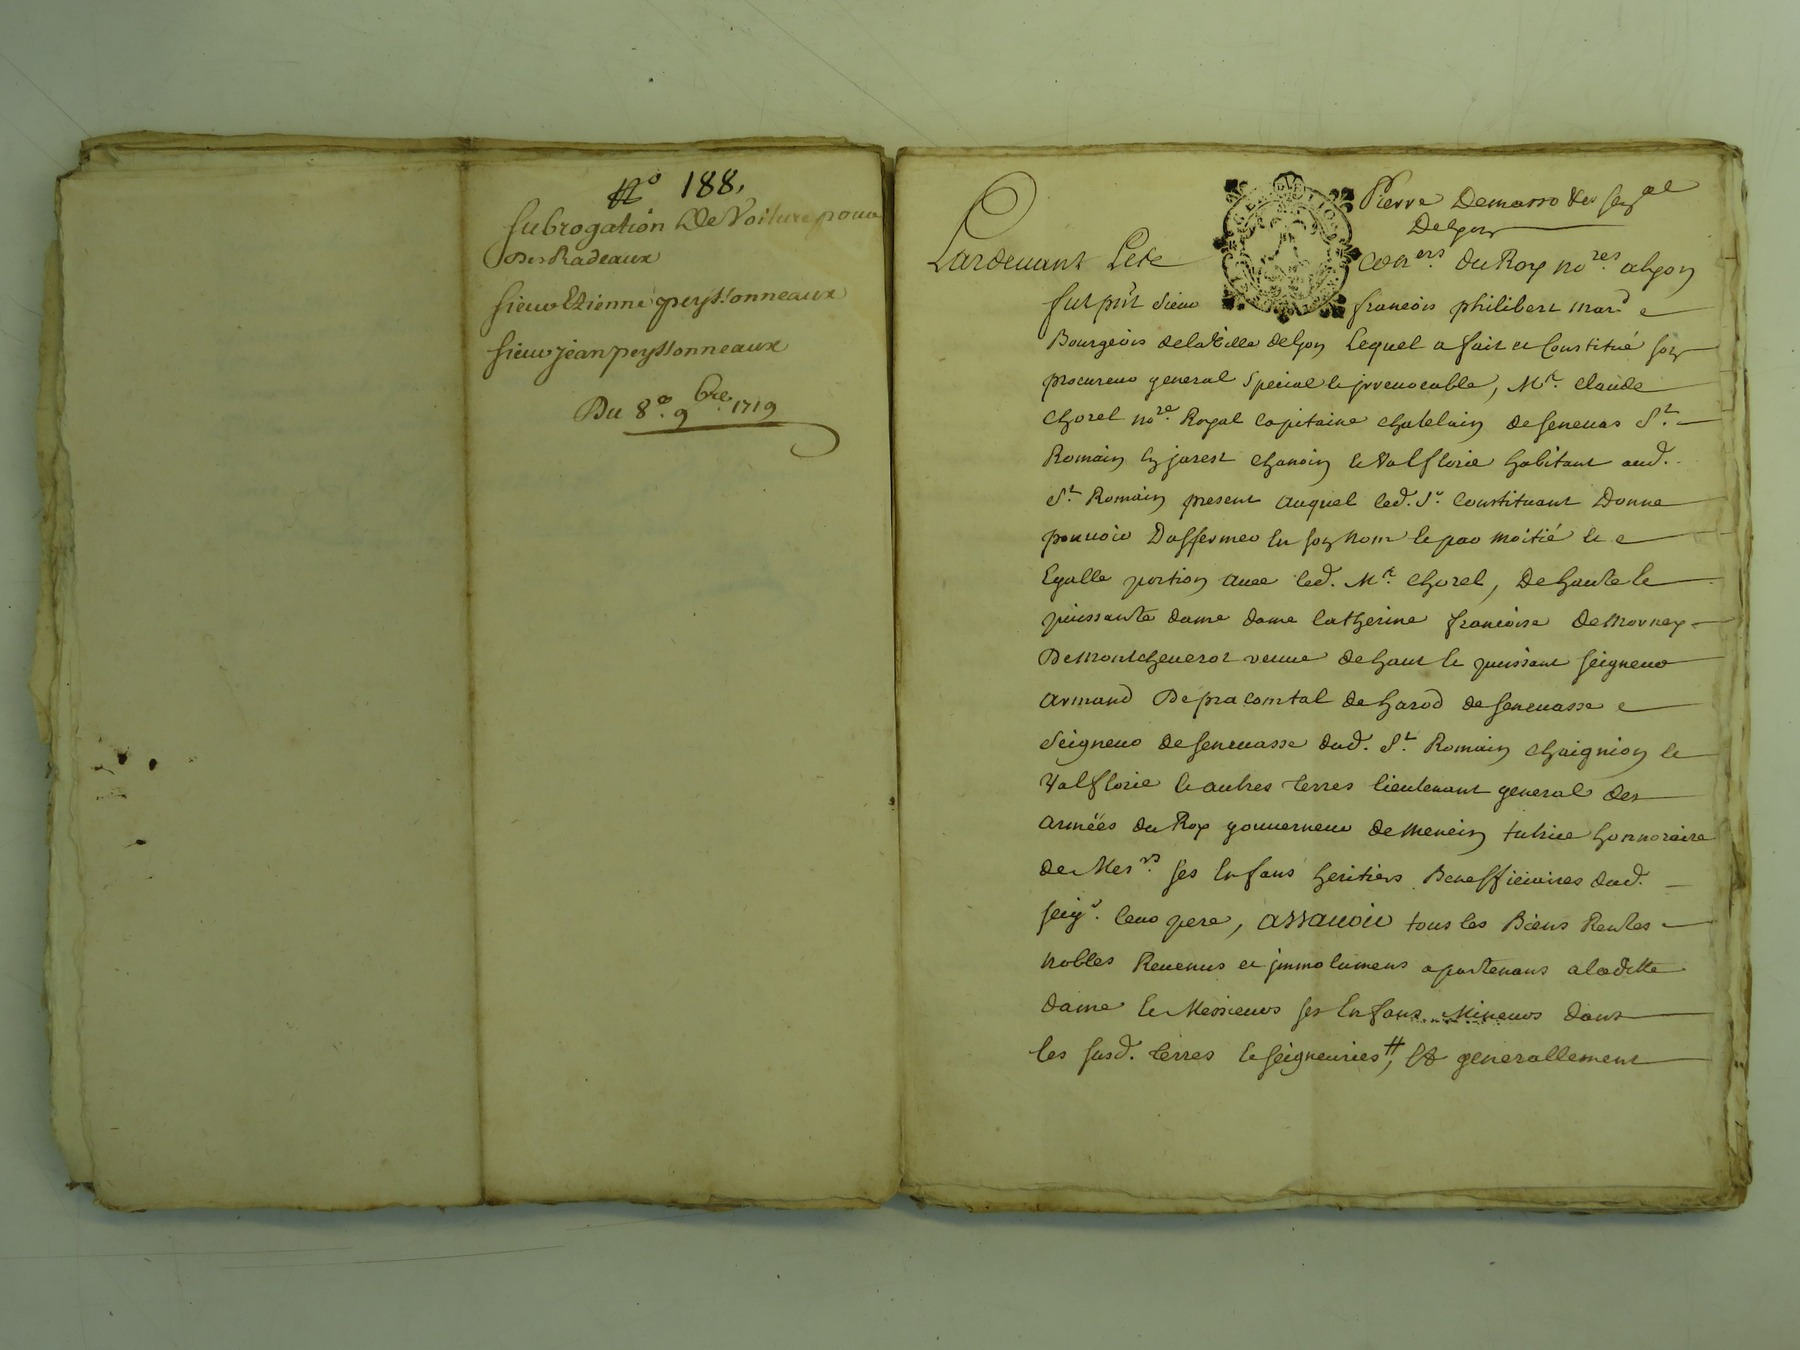 N° 188,
Subrogation De Voiture pour
Des Radeaux
sieur Etienne peyssonneaux
sieur jean peyssonneaux
Du 8e. 9bre. 1719
Pierre Demasso
Pardevant Les
Coners. du Roy nores. a lyon
fut pnt sieur francois philibert mard
Bourgeois de la Ville de lyon Lequel a fait et Constitué son
procureur general special & jrrevocable, Me. Claude
Chorel nore. Royal Capitaine Chatelain de Senevas St.
Romain En jarest Chanoin & Valflorie habitant aud.
St. Romain present auquel led. Sr. Constituant Donne
pouvoir D'affermer En son Nom & par Moitié &
Egalle portion avec led. Me. Chorel, De haute &
puissante dame dame Catherine francoise De Mornay
De Montchevrot veuve de haut & puissant seigneur
Armand De pracomtal de harod de senevasse
Seigneur de senevasse dud. St. Romain Chaignion &
Valflorie & autres terres lieutenant general des
armées du Roy gouverneur de Menein tutrice honnoraire
de Mesrs. ses Enfans heritiers Benefficiaires dud.
seigr. leur pere, assavoir tous les Biens Rentes
Nobles Revenus et jmmolumens apartenans a laditte
dame & Messieurs ses Enfans Mineurs dans
les susd. terres & seigneuries #, Et generallement